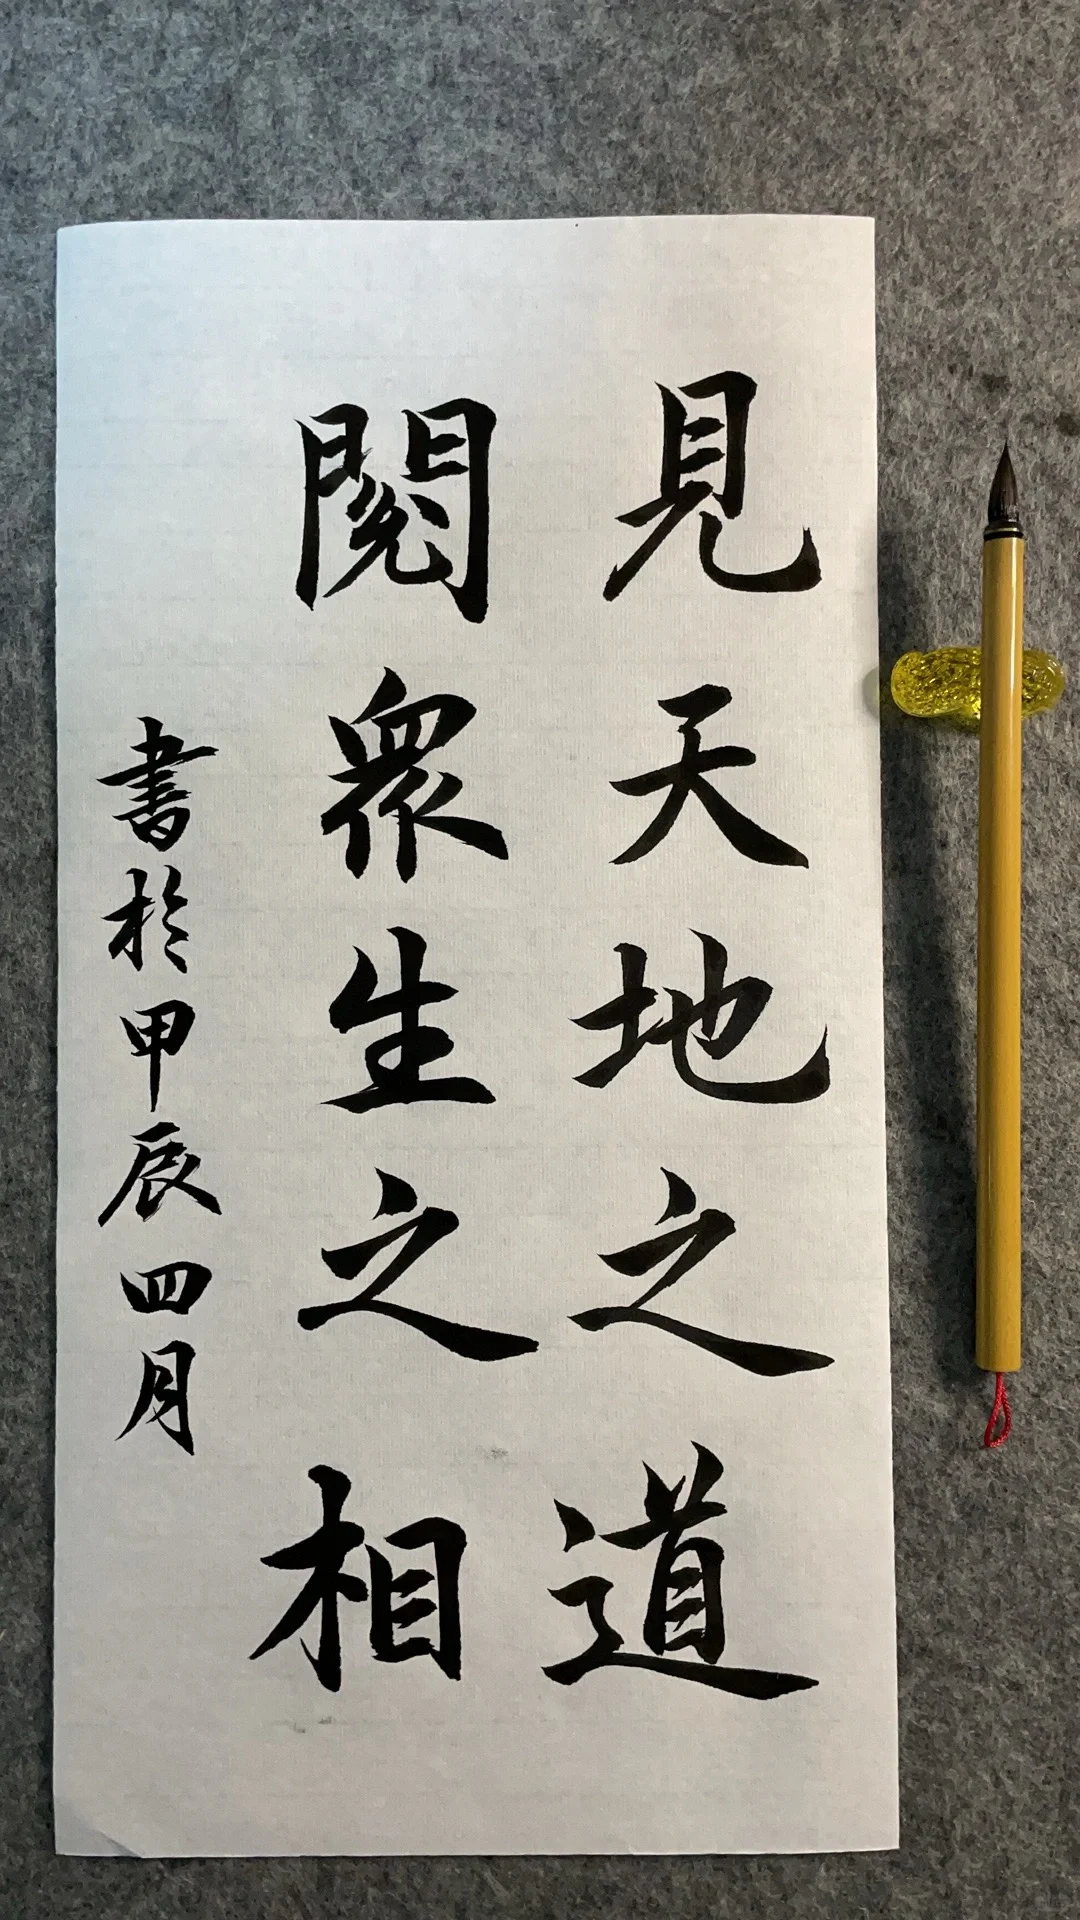 見天地之道
閱衆生之相
書於甲辰四月